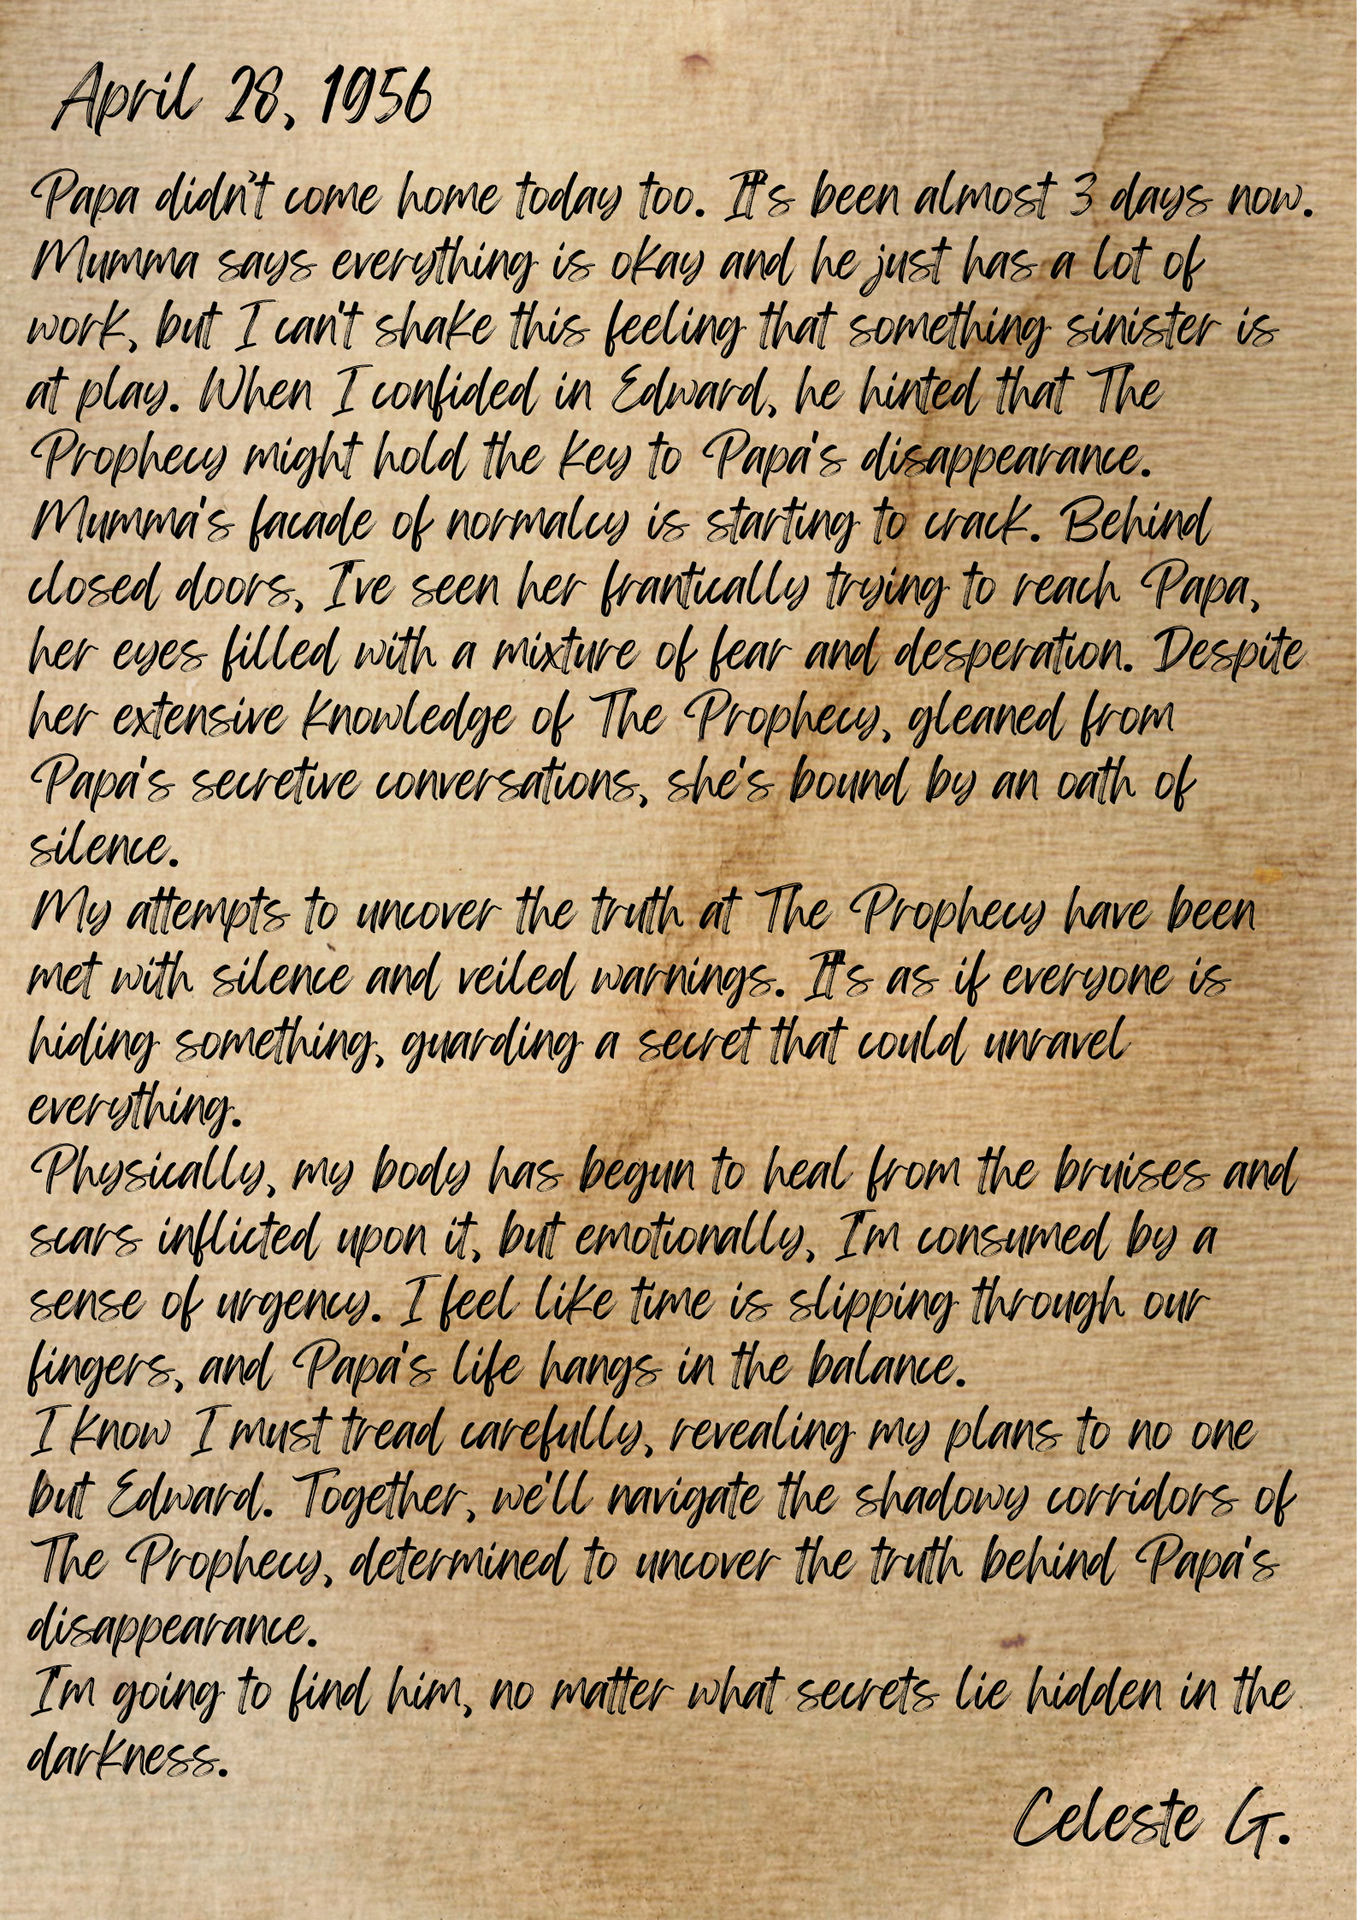 April 28, 1956
Papa didn't come home today too. It's been almost 3 days now.
Mumma says everything is okay and he just has a lot of
work, but I can't shake this feeling that something sinister is
at play. When I confided in Edward, he hinted that The
Prophecy might hold the key to Papa's disappearance.
Mumma's facade of normalcy is starting to crack. Behind
closed doors, I've seen her frantically trying to reach Papa,
her eyes filled with a mixture of fear and desperation. Despite
her extensive knowledge of The Prophecy, gleaned from
Papa's secretive conversations, she's bound by an oath of
silence.
My attempts to uncover the truth at The Prophecy have been
met with silence and veiled warnings. It's as if everyone is
hiding something, guarding a secret that could unravel
everything.
Physically, my body has begun to heal from the bruises and
scars inflicted upon it, but emotionally, I'm consumed by a
sense of urgency. I feel like time is slipping through our
fingers, and Papa's life hangs in the balance.
I know I must tread carefully, revealing my plans to no one
but Edward. Together, we'll navigate the shadowy corridors of
The Prophecy, determined to uncover the truth behind Papa's
disappearance.
I'm going to find him, no matter what secrets lie hidden in the
darkness.
Celeste G.